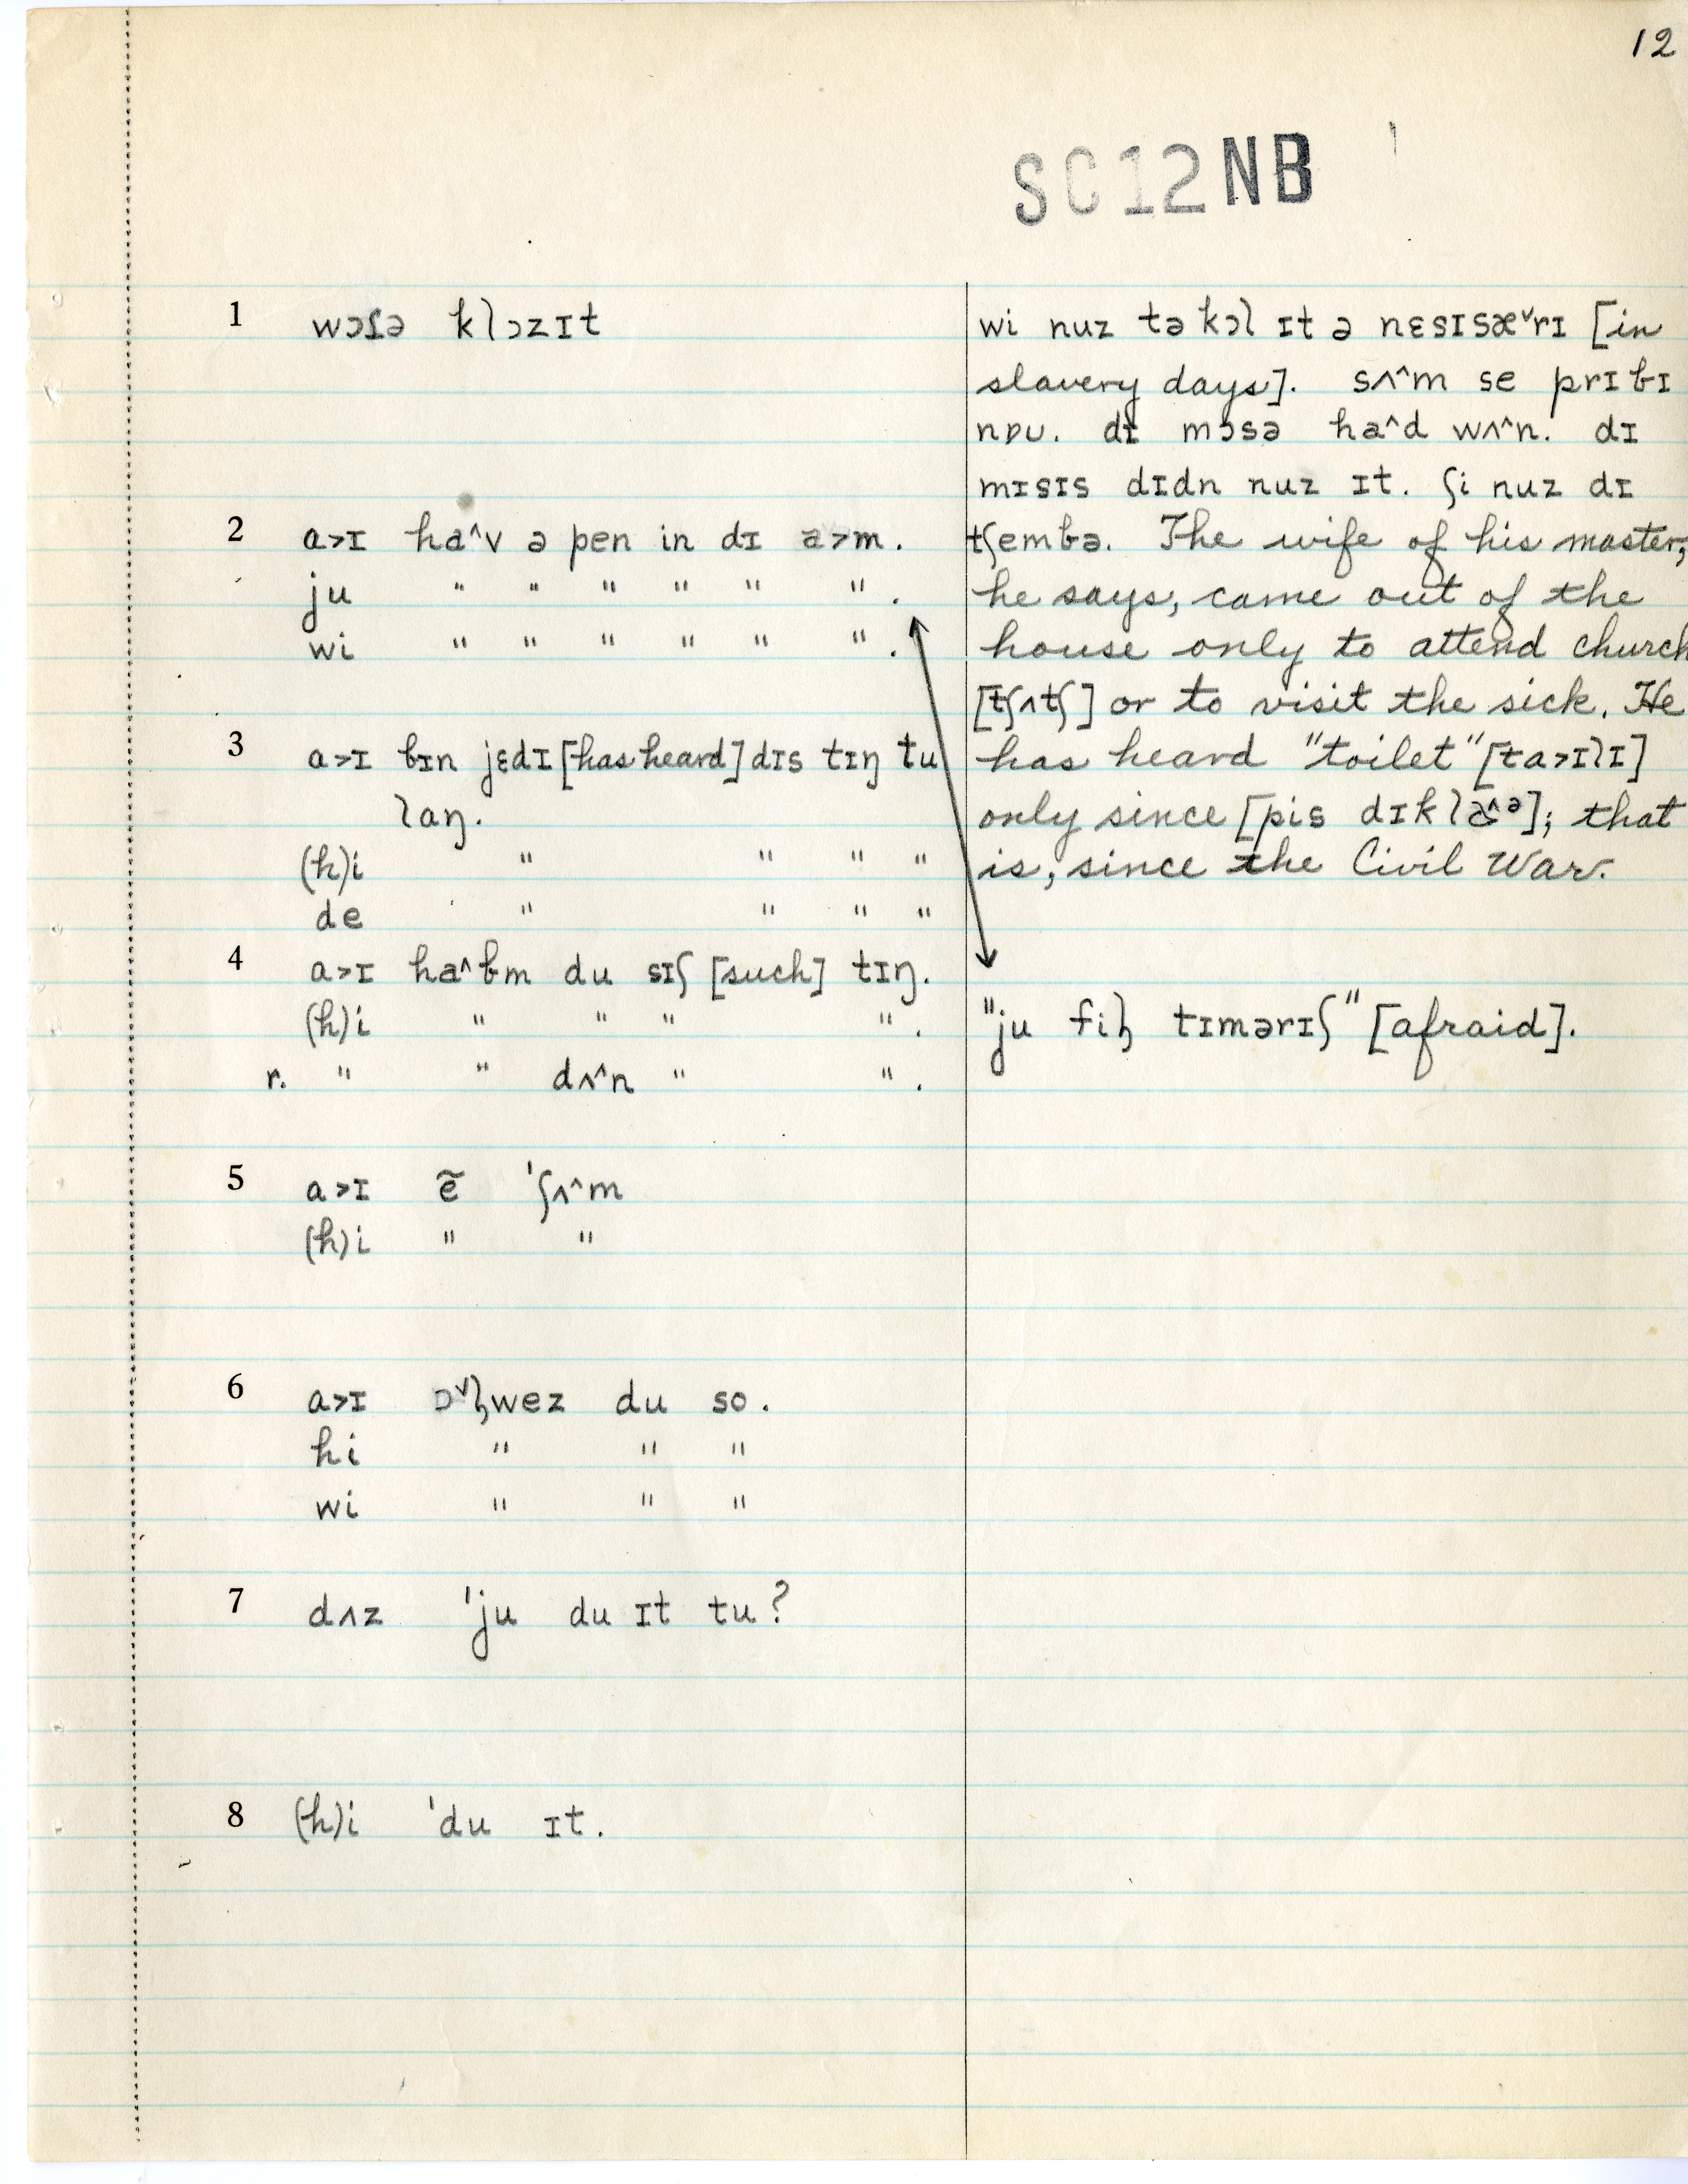 12
SC12NB
1 wɔʃə klɔzɪt
2 a˃ɪ ha^v ə pen in dɪ a˃m.
ju " " " " " " .
wi " " " " " " .
3 a˃ɪ ɓɪn jɛdɪ [has heard] dɪs tɪŋ tu
laŋ.
(h)i " " " "
de " " " "
4 a˃ɪ ha^ɓm du sɪʃ [such] tɪŋ.
(h)i " " " " .
r. " " dʌ^n " " .
5 a˃ɪ ẽ 'ʃʌ^m
(h)i " "
6 a˃ɪ ɔ˅ɫwez du so.
hi " " "
wi " " "
7 dʌz 'ju du ɪt tu?
8 (h)i 'du ɪt.
wi nuz tə kɔl ɪt ə nɛsɪsæ˅rɪ [in
slavery days]. sʌ^m se prɪɓɪ
nɒʊ. dɪ mɔsə ha^d wʌ^n. dɪ
mɪsɪs dɪdn nuz ɪt. ʃi nuz dɪ
tʃemɓə. The wife of his master,
he says, came out of the
house only to attend church
[tʃʌtʃ] or to visit the sick. He
has heard "toilet" [ta˃ɪlɪ]
only since [pis dɪkl]; that
is, since the Civil War.
"ju fiɫ tɪmərɪʃ" [afraid].